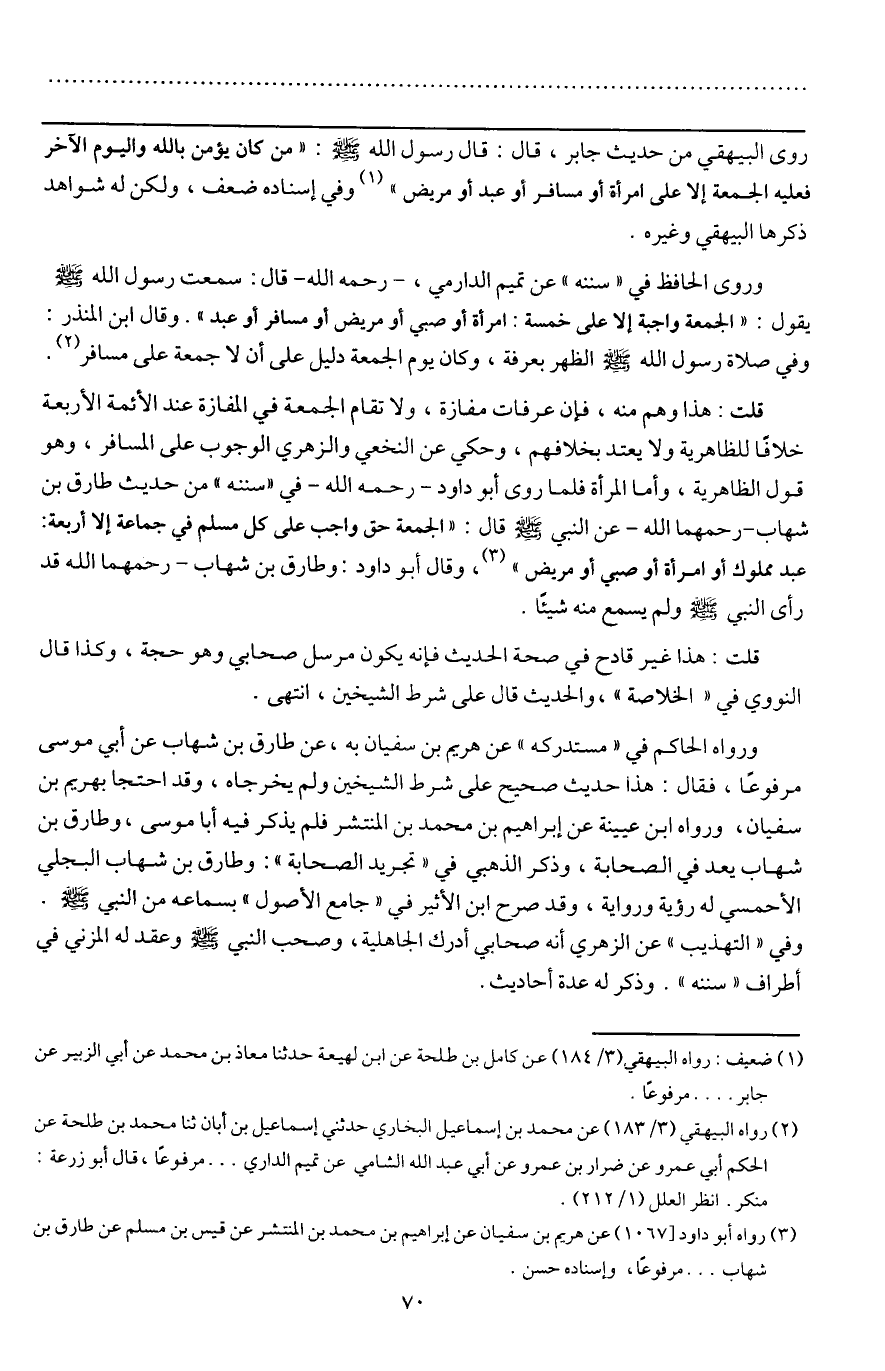 روى البيهقي من حديث جابر ، قال : قال رسول الله ﷺ : « من كان يؤمن بالله واليوم الآخر
فعليه الجمعة إلا على امرأة أو مسافر أو عبد أو مريض » (١) وفي إسناده ضعف ، ولكن له شواهد
ذكرها البيهقي وغيره .
وروى الحافظ في « سننه » عن تميم الدارمي ، - رحمه الله- قال : سمعت رسول الله ﷺ
يقول : « الجمعة واجبة إلا على خمسة : امرأة أو صبي أو مريض أو مسافر أو عبد » . وقال ابن المنذر :
وفي صلاة رسول الله ﷺ الظهر بعرفة ، وكان يوم الجمعة دليل على أن لا جمعة على مسافر(٢) .
قلت : هذا وهم منه ، فإن عرفات مفازة ، ولا تقام الجمعة في المفازة عند الأئمة الأربعة
خلافًا للظاهرية ولا يعتد بخلافهم ، وحكي عن النخعي والزهري الوجوب على المسافر ، وهو
قول الظاهرية ، وأما المرأة فلما روى أبو داود - رحمه الله - في «سننه » من حديث طارق بن
شهاب-رحمهما الله - عن النبي ﷺ قال : « الجمعة حق واجب على كل مسلم في جماعة إلا أربعة:
عبد مملوك أو امرأة أو صبي أو مريض » (٣)، وقال أبو داود : وطارق بن شهاب - رحمهما الله قد
رأى النبي ﷺ ولم يسمع منه شيئًا .
قلت : هذا غير قادح في صحة الحديث فإنه يكون مرسل صحابي وهو حجة ، وكذا قال
النووي في « الخلاصة » ،والحديث قال على شرط الشيخين ، انتهى .
ورواه الحاكم في « مستدركه » عن هريم بن سفيان به ، عن طارق بن شهاب عن أبي موسى
مرفوعًا ، فقال : هذا حديث صحيح على شرط الشيخين ولم يخرجاه ، وقد احتجا بهريم بن
سفيان، ورواه ابن عيينة عن إبراهيم بن محمد بن المنتشر فلم يذكر فيه أبا موسى ، وطارق بن
شهاب يعد في الصحابة ، وذكر الذهبي في « تجريد الصحابة » : وطارق بن شهاب البجلي
الأحمسي له رؤية ورواية ، وقد صرح ابن الأثير في « جامع الأصول » بسماعه من النبي ﷺ .
وفي « التهذيب » عن الزهري أنه صحابي أدرك الجاهلية، وصحب النبي ﷺ وعقد له المزني في
أطراف « سننه » . وذكر له عدة أحاديث .
(١) ضعيف : رواه البيهقي(٣/ ١٨٤) عن كامل بن طلحة عن ابن لهيعة حدثنا معاذ بن محمد عن أبي الزبير عن
جابر . . . . مرفوعًا .
(٢) رواه البيهقي (٣/ ١٨٣) عن محمد بن إسماعيل البخاري حدثني إسماعيل بن أبان ثنا محمد بن طلحة عن
الحكم أبي عمرو عن ضرار بن عمرو عن أبي عبد الله الشامي عن تميم الداري . . .مرفوعًا ، قال أبو زرعة :
منكر . انظر العلل (١/ ٢١٢) .
(٣) رواه أبو داود [١٠٦٧) عن هريم بن سفيان عن إبراهيم بن محمد بن المنتشر عن قيس بن مسلم عن طارق بن
شهاب . . .مرفوعًا، وإسناده حسن .
٧٠